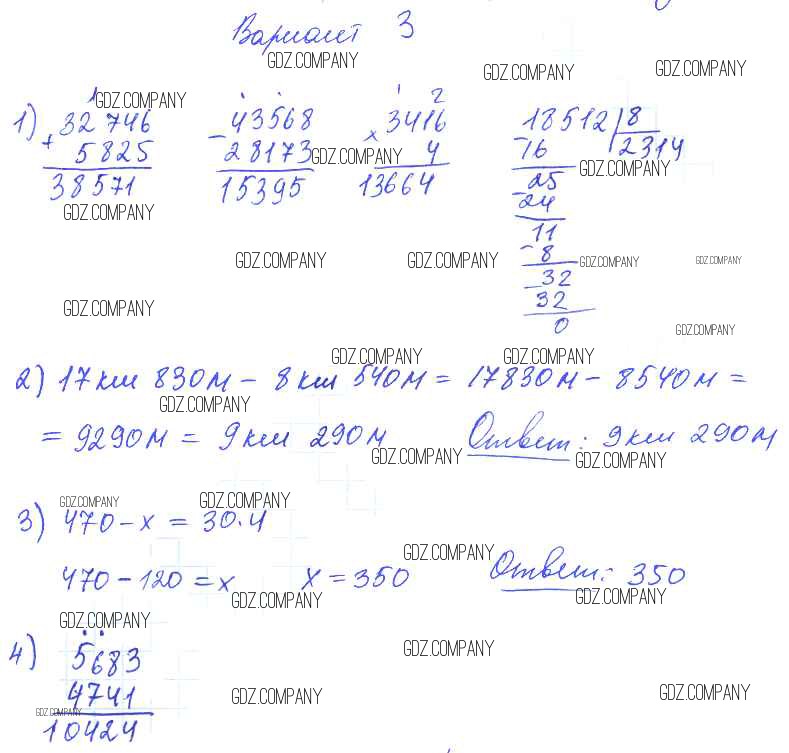 Вариант 3
GDZ.COMPANY GDZ.COMPANY GDZ.COMPANY
1) 32746 + 5825 = 38571
43568 - 28173 = 15395
3416 x 4 = 13664
18512 | 8
2314
16
25
24
11
8
32
32
0
GDZ.COMPANY GDZ.COMPANY GDZ.COMPANY
GDZ.COMPANY
GDZ.COMPANY GDZ.COMPANY GDZ.COMPANY GDZ.COMPANY
GDZ.COMPANY GDZ.COMPANY
GDZ.COMPANY GDZ.COMPANY
2) 17 км 830 м - 8 км 540 м = 17830 м - 8540 м =
GDZ.COMPANY
= 9290 м = 9 км 290 м Ответ: 9 км 290 м
GDZ.COMPANY GDZ.COMPANY
GDZ.COMPANY GDZ.COMPANY
3) 470 - x = 30·4
GDZ.COMPANY
470 - 120 = x x = 350 Ответ: 350
GDZ.COMPANY GDZ.COMPANY
GDZ.COMPANY
4) 5683
GDZ.COMPANY
4741
GDZ.COMPANY GDZ.COMPANY GDZ.COMPANY
10424